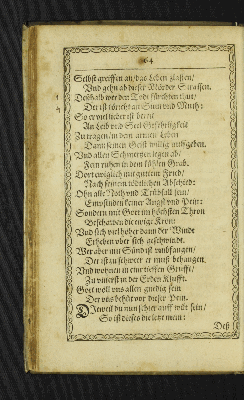 64
Selbst greiffen an / das Leben glasten /
Und gehn ab dieser Mörder Strassen.
Deßhalb wer den Todt förchten thut /
Der ist töricht an Sinn und Muth:
So er viel lieber ist bereit
An Leib und Seel Gefehrligkeit
Zu tragen / in dem armen Leben
Dann seinen Geist willig auffgeben.
Und allen Schmertzen legen ab /
Fein ruhen in dem kühlen Grab.
Dort ewiglich mit gutem Fried /
Nach seinem tödtlichen Abschied:
Ohn alle Noth und Trübsall sein /
Empfinden keiner Angst und Pein:
Sondern mit Gott im höchsten Thron
Beschawen die ewige Kron:
Und sich viel höher dann der Winde
Erheben ober sich geschwindt.
Wer aber mit Sünd ist umbfangen /
Der ist zu schwer er muß behangen
Und wohnen in einer tieffen Grufft /
Zu unterst in der Erden Klufft.
Gott woll uns allen gnedig sein
Der uns behüt vor dieser Pein.
DIeweil du nun sicher auff wilt sein /
So ist dieses die lehr mein:
Deß